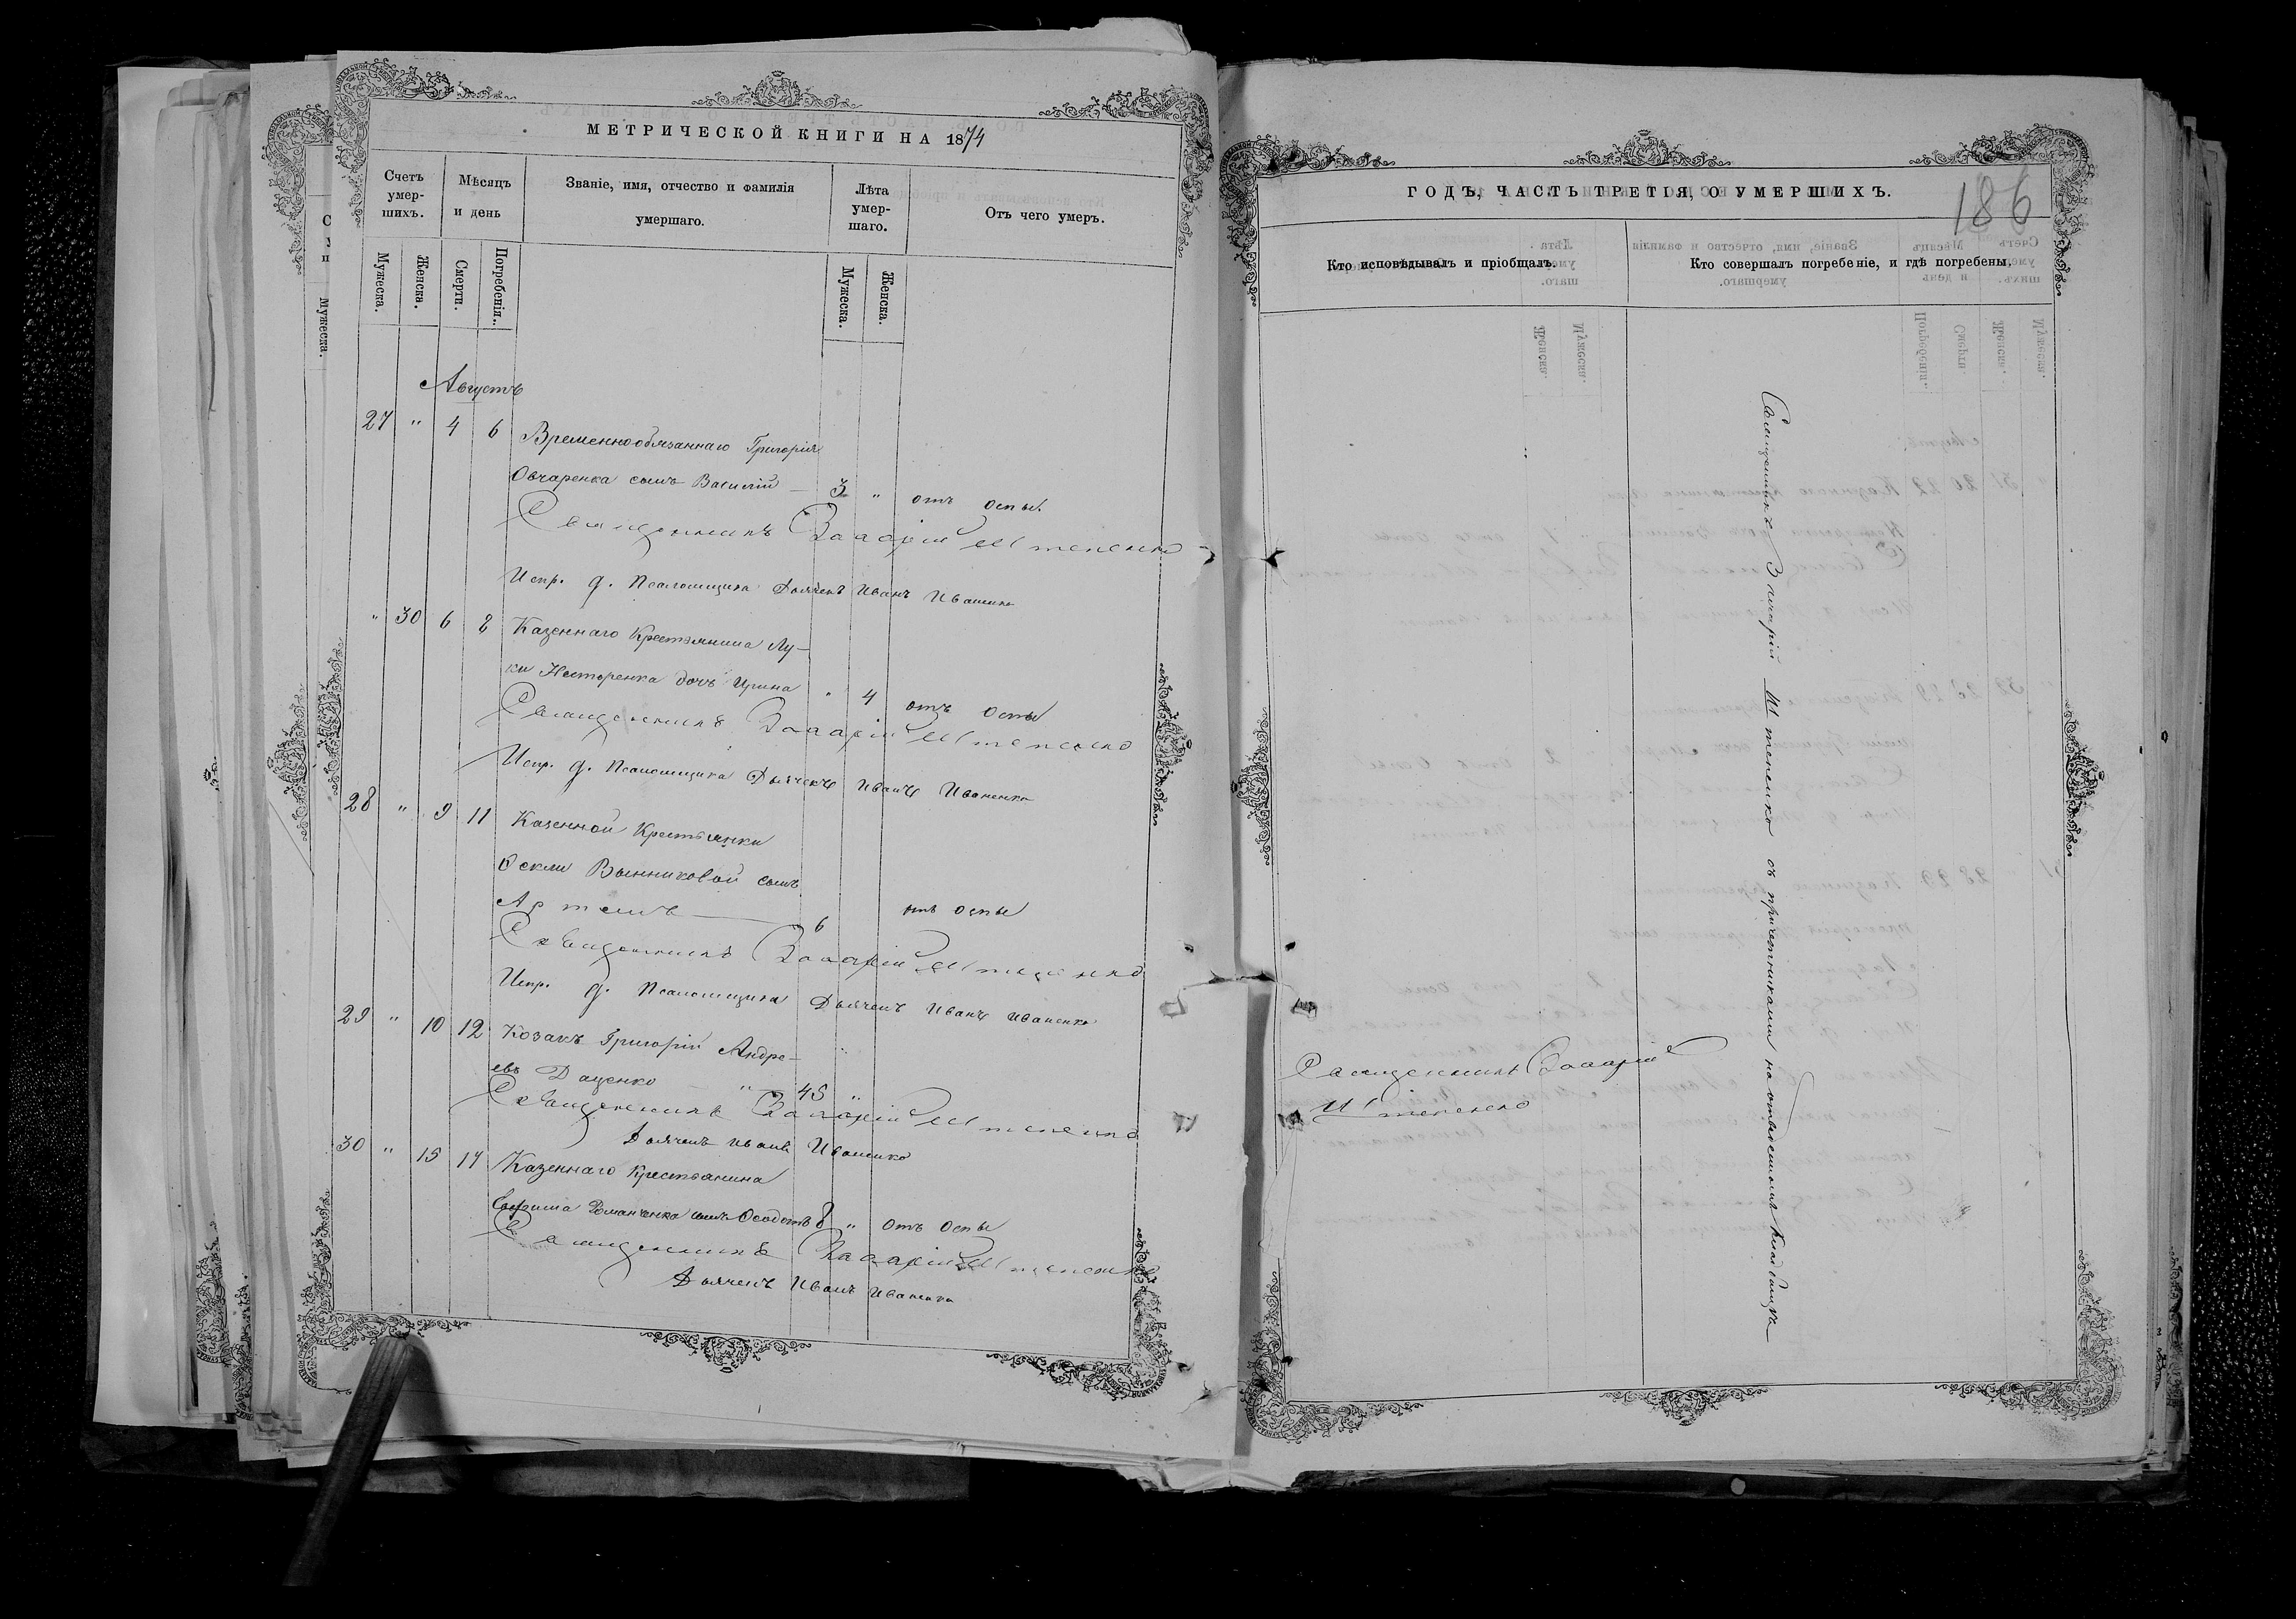 МЕТРИЧЕСКОЙ КНИГИ НА 1874
Счетъ умер-шихъ.
Мѣсяцъ и день
Званіе, имя, отчество и фамилія умершаго.
Лѣта умер-шаго.
Отъ чего умеръ.
Мужеска.
Женска.
Смерти.
Погребенія.
Мужеска.
Женска.
Августъ
27 " 4 6 Временнообязаннаго Григорія
Овчаренка сынъ Василій — 3 " отъ оспы.
Священникъ Захарій Штепенко
Испр. д. Псаломщика Дьячекъ Иванъ Иваненко
" 30 6 8 Казеннаго Крестьянина Лу-
ки Нестеренка дочь Ирина " 4 отъ оспы
Священникъ Захарій Штепенко
Испр. д. Псаломщика Дьячекъ Иванъ Иваненко
28 " 9 11 Казенной Крестьянки
Феклы Винниковой сынъ
Артемъ — 6 отъ оспы
Священникъ Захарій Штепенко
Испр. д. Псаломщика Дьячекъ Иванъ Иваненко
29 " 10 12 Козакъ Григорій Андре-
евъ Даценко — " — 45 "
Священникъ Захарій Штепенко
Дьячекъ Иванъ Иваненко
30 " 15 17 Казеннаго Крестьянина
Романенка сынъ Феодотъ 8 " отъ оспы
Священникъ Захарій Штепенко
Дьячекъ Иванъ Иваненко
ГОДЪ, ЧАСТЬ ТРЕТІЯ, О УМЕРШИХЪ.
186
Кто исповѣдывалъ и пріобщалъ.
Кто совершалъ погребеніе, и гдѣ погребены.
Священникъ Захарій
Штепенко
Священникъ Захарій Штепенко съ причетниками на отведенномъ кладбищѣ